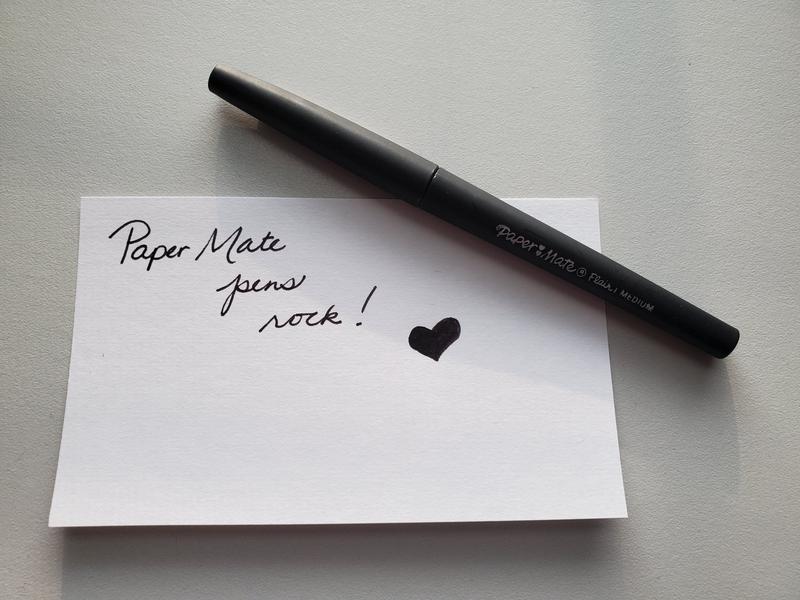 Paper Mate
pens
rock!
Paper Mate® Flair | MEDIUM